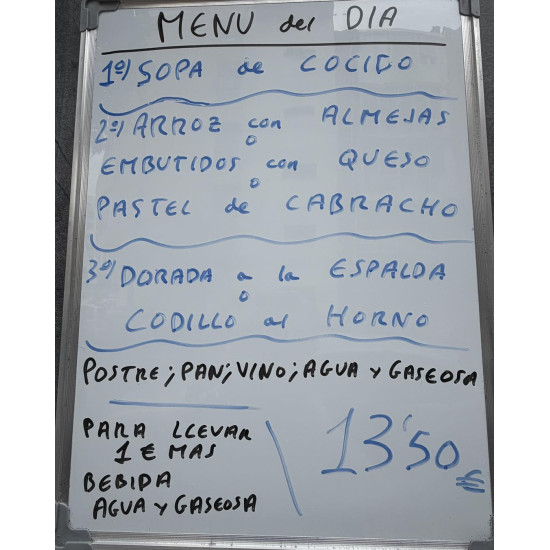 MENU del DIA
1º) SOPA de COCIDO
2º) ARROZ con ALMEJAS
o
EMBUTIDOS con QUESO
o
PASTEL de CABRACHO
3º) DORADA a la ESPALDA
o
CODILLO al HORNO
POSTRE; PAN; VINO; AGUA y GASEOSA
PARA LLEVAR
1 € MAS
BEBIDA
AGUA y GASEOSA
13'50 €